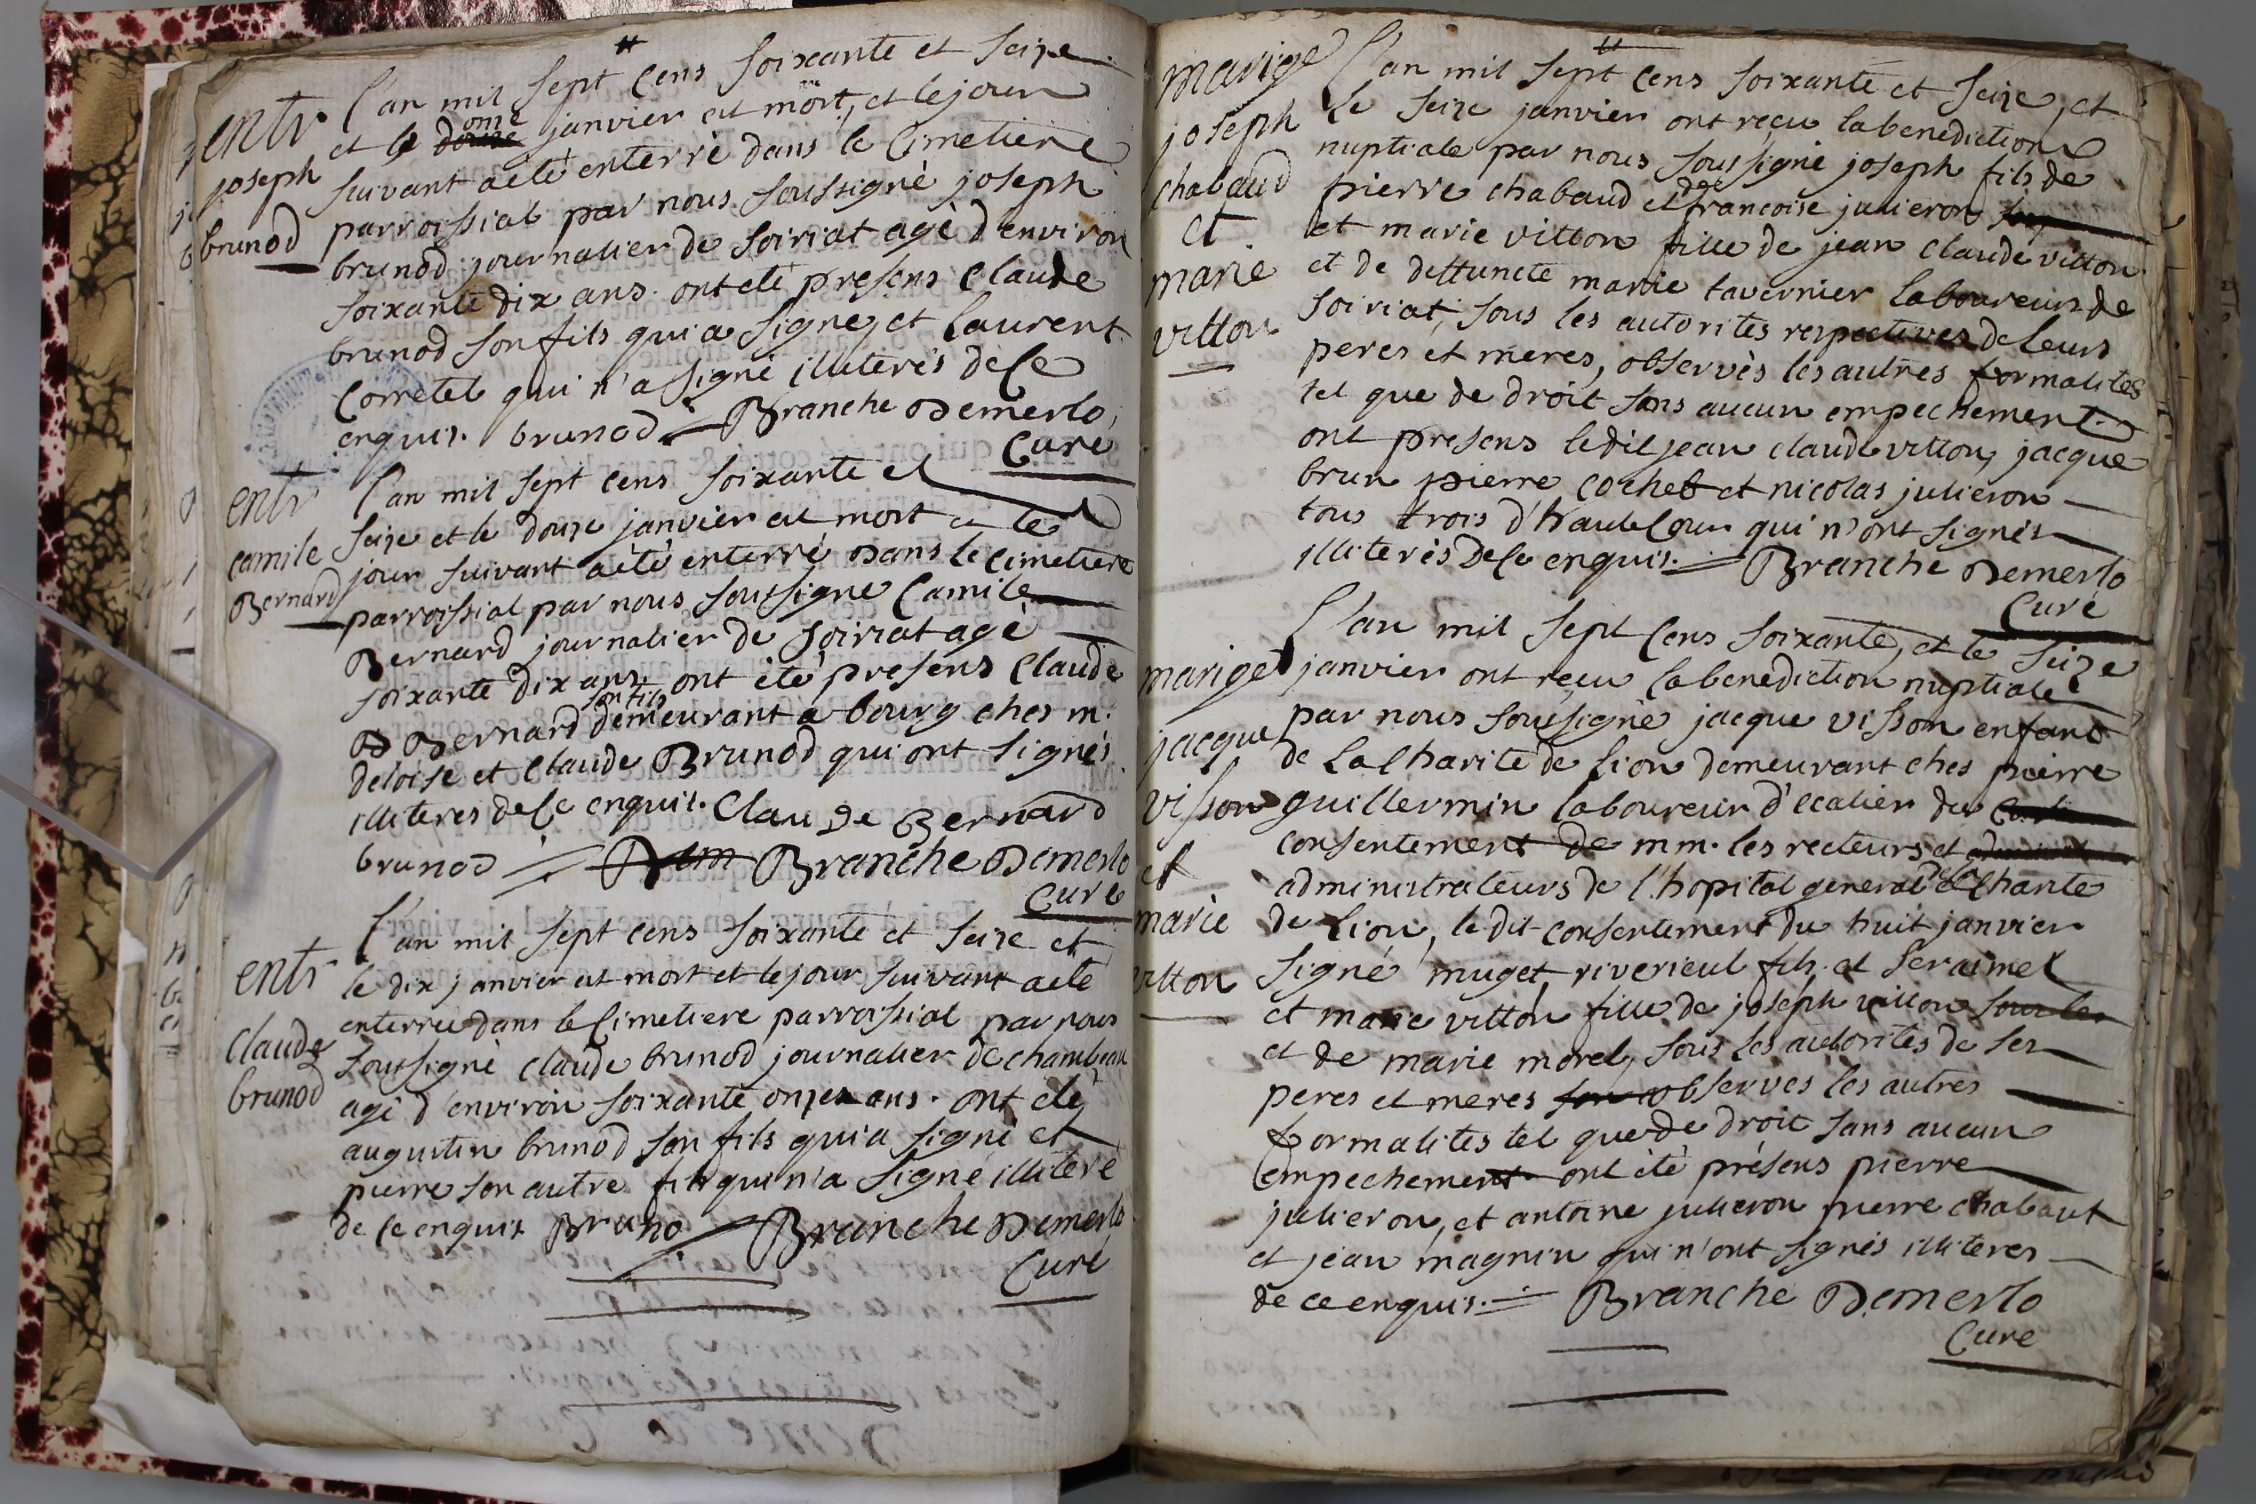 entr
joseph
brunod
L'an mil sept cens soixante et seize
et le onze janvier est mort, et le jour
suivant a eté enterré dans le Cimetiere
parroissial par nous soussigné joseph
brunod journalier de soiriat agé d'environ
soixante dix ans. ont eté presens Claude
brunod son fils qui a signe, et Laurent
Corretel qui n'a signé illiterés de Ce
enquis. brunod Branche Demerlo
Curé
entr
camile
Bernard
L'an mil sept cens soixante et
seize et le douze janvier est mort et le
jour suivant a été enterré Dans le cimetiere
parroissial par nous soussigné Camile
Bernard journalier de soiriat agé
soixante dix ans. ont été presens Claude
Bernard son fils demeurant a bourg ches m.
deloise et Claude Brunod qui ont signés
illiteres de Ce enquis. Claude Bernard
brunod Branche Demerlo
Cure
entr
Claude
brunod
L'an mil sept cens soixante et seize et
le dix janvier est mort et le jour suivant a eté
enterrée dans le Cimetiere parroissial par nous
soussigné Claude brunod journalier de chambeau
agé d'environ soixante onzes ans. ont eté
augustin brunod son fils qui a signé et
pierre son autre fils qui n'a signé illiteré
de Ce enquis Bruno Branche Demerlo
Curé
marige
joseph
chabaud
et
marie
vitton
L'an mil sept cens soixante et seize, et
le seize janvier ont reçu la benediction
nuptiale par nous soussigné joseph fils de
pierre chabaud et de francoise julieron
et marie vitton fille de jean claude vitton
et de deffuncte marie tavernier laboureurs de
soiriat, sous les autorites respectives de leurs
peres et meres, observés les autres formalites
tel que de droit sans aucun empechement
ont presens ledit jean claude vitton, jacque
brun pierre cochet et nicolas julieron
tous trois d'hautecour qui n'ont signés
illiterés de Ce enquis. Branche Demerlo
Curé
mariget
jacque
visson
et
marie
vitton
L'an mil sept Cens soixante, et le seize
janvier ont reçu la benediction nuptiale
par nous soussigné jacque visson enfant
de La Charité de Lion demeurant ches pierre
guillermin laboureur d'ecalier du
consentement de m m. les recteurs et
administrateurs de l'hopital general de la Charite
de Lion, le dit consentement du huit janvier
signé muget, riverieul fils. et seraimel
et marie vitton fille de joseph vitton sous les
et de marie morel, sous les autorités de ses
peres et meres observes les autres
formalites tel que de droit sans aucun
empechement ont été présens pierre
julieron, et antoine julieron pierre chabaut
et jean magnin qui n'ont signés illiteres
de ce enquis. Branche Demerlo
Cure